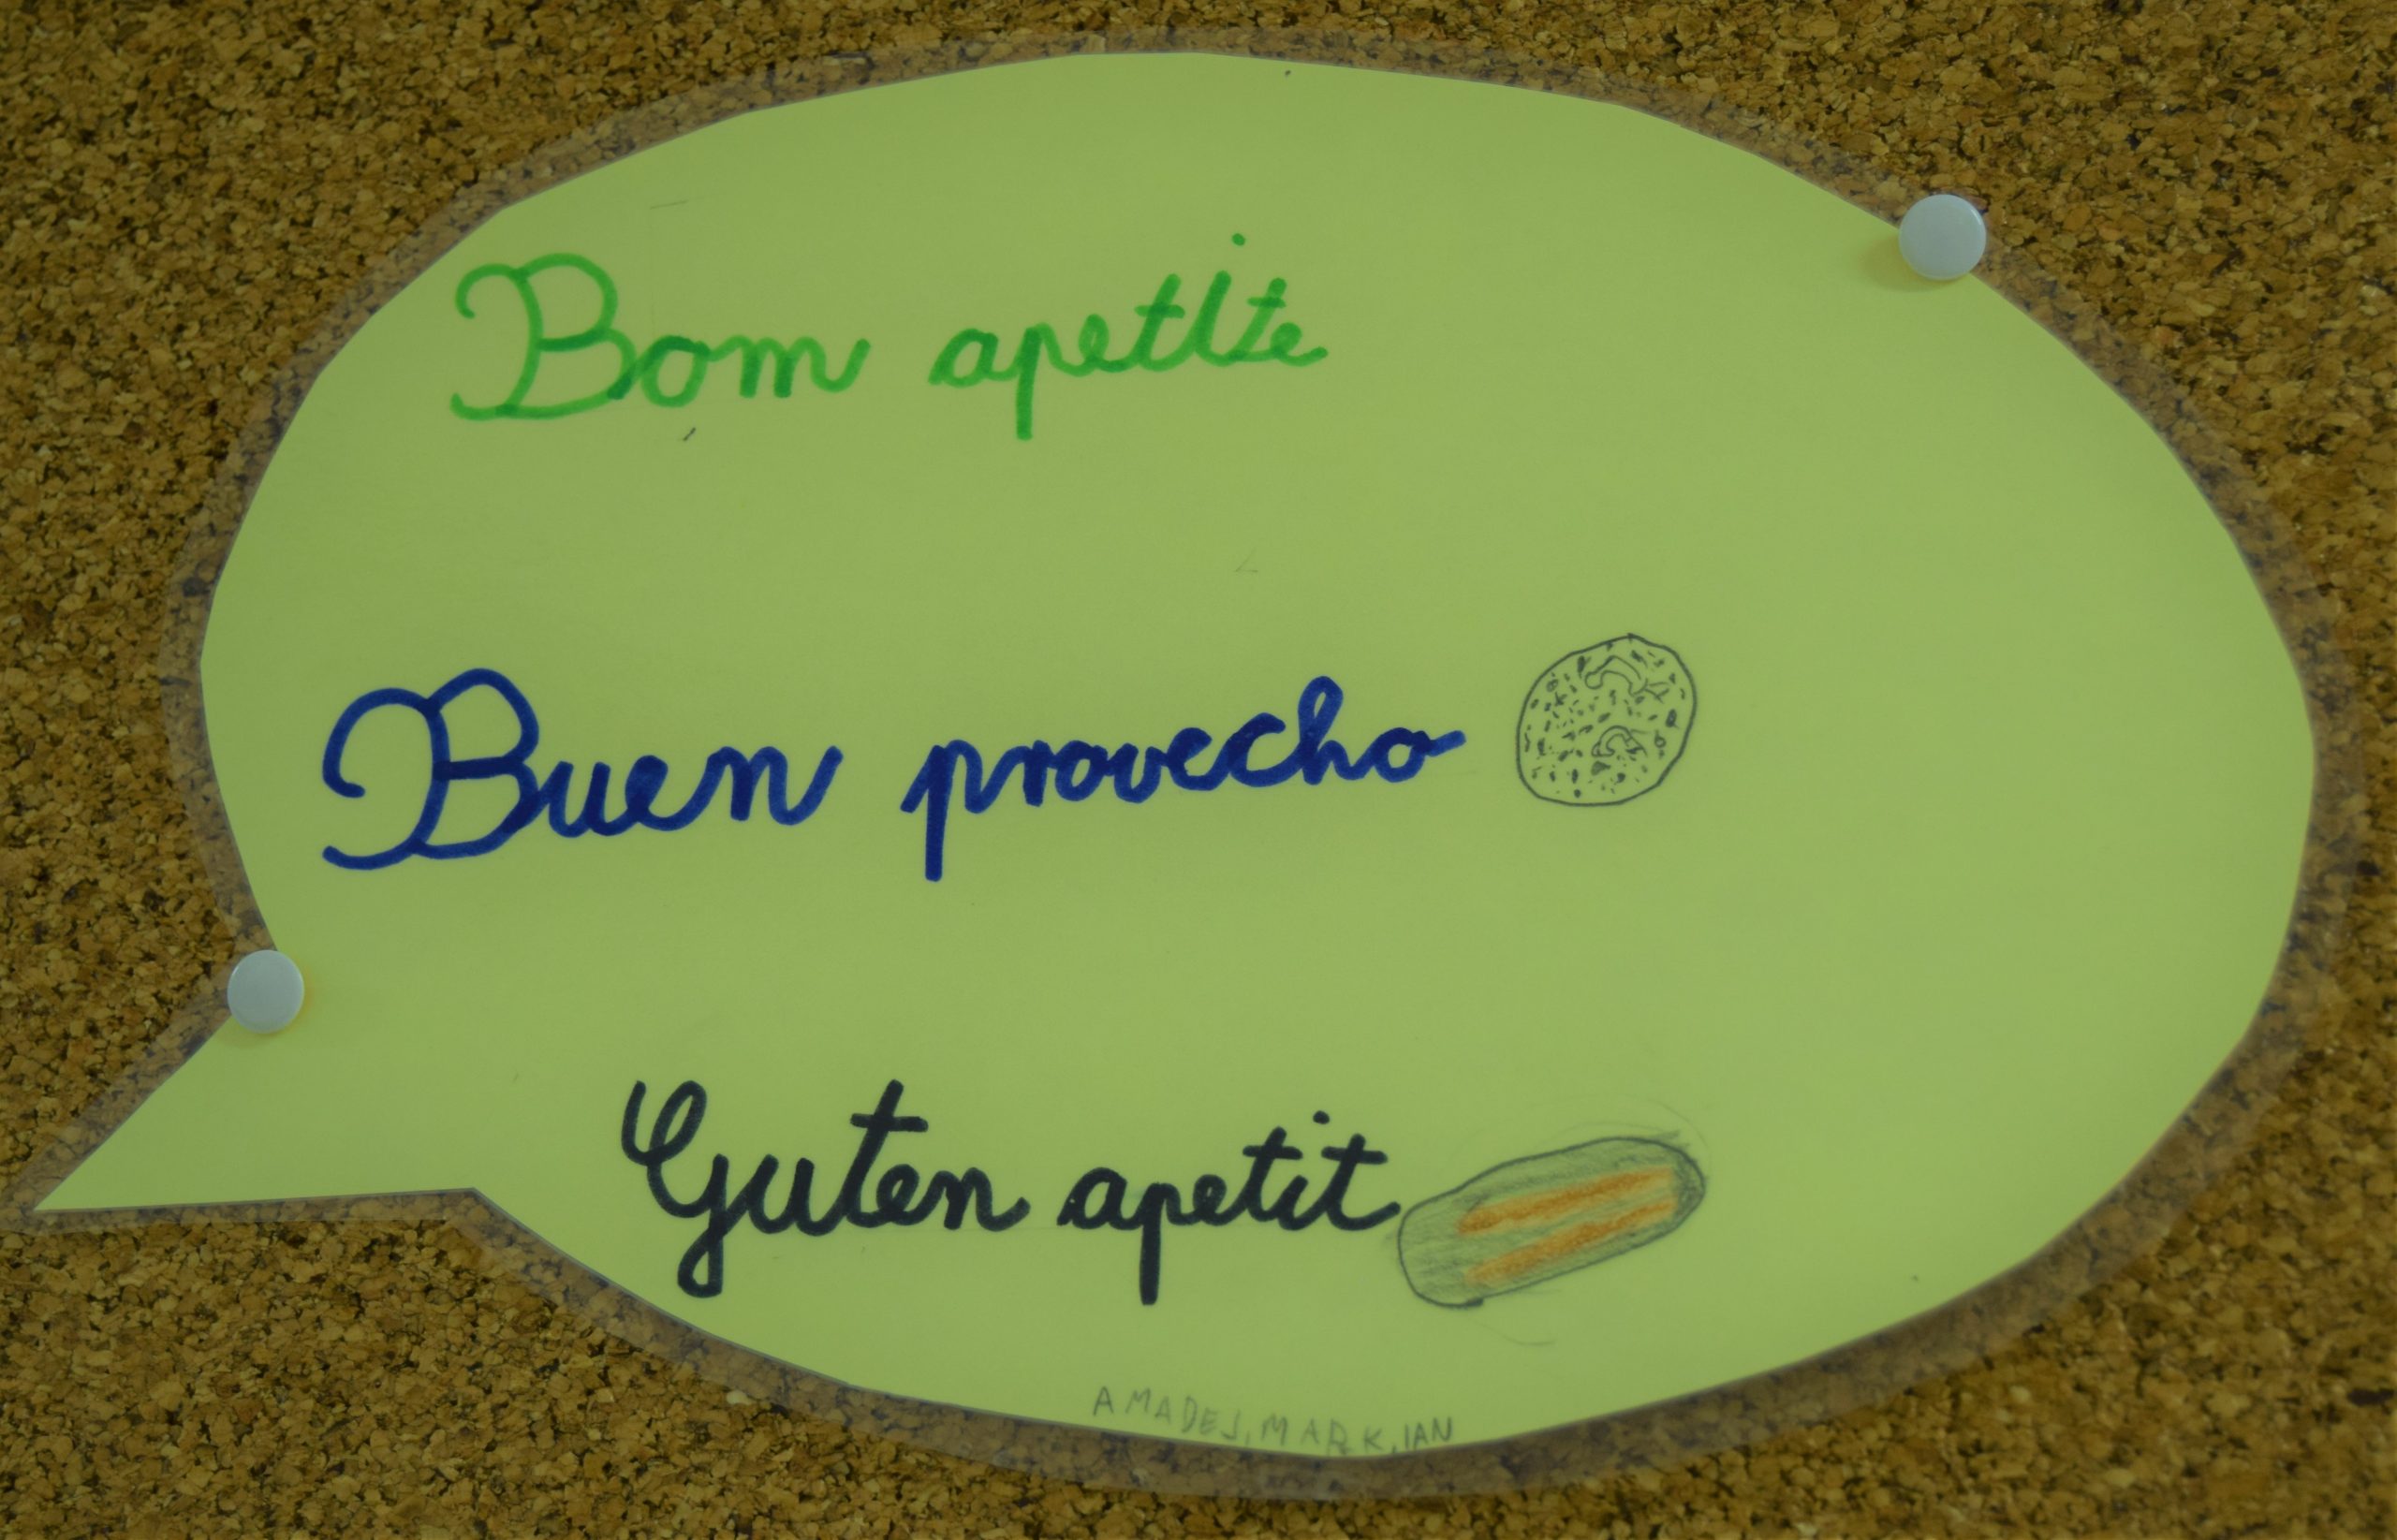 Bom apetite
Buen provecho
Guten apetit
AMADEJ, MARK, IAN